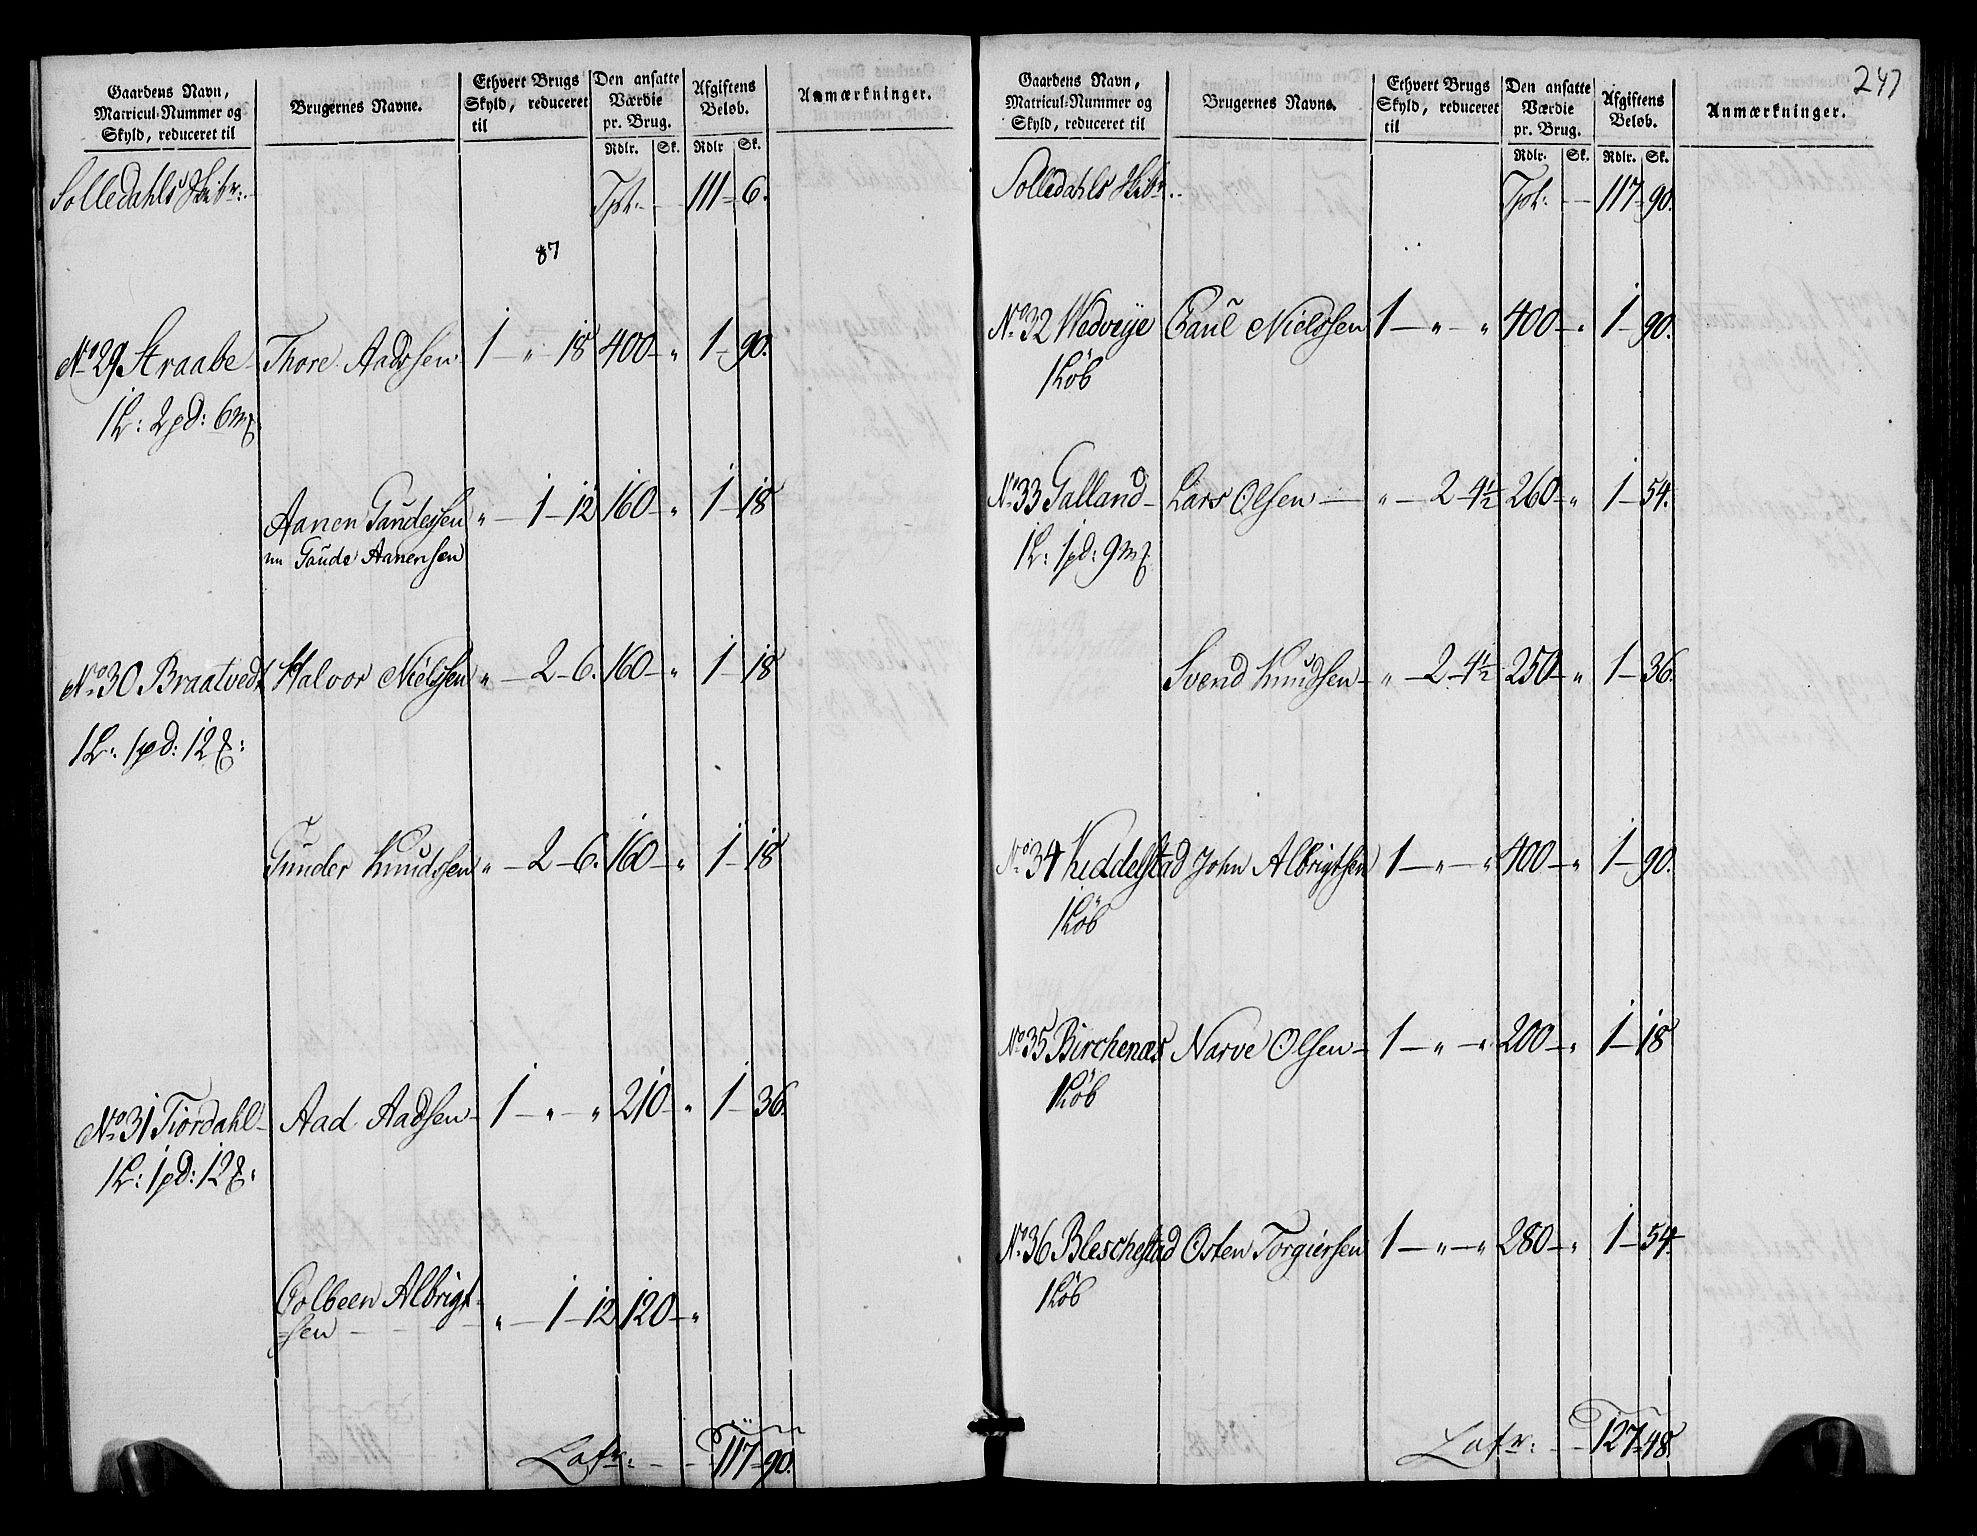 Gaardens Navn, Matricul-Nummer og Skyld, reduceret til | Brugernes Navne. | Ethvert Brugs Skyld, reduceret til | Den ansatte Værdie pr. Brug. Rdlr. Sk. | Afgiftens Beløb. Rdlr Sk. | Anmærkninger.
Solledahls Skibr: Tpt. 111 6.
87
No 29 Straabe Thore Aadssen 1 — „ 18 400 — „ 1 — 90.
1L: 2pd: 6mk
Aanen Gundersen „ — 1 — 12 160 — „ 1 — 18
nu Gaude Aanensen
No 30 Braatvedt Halvor Nielssen „ — 2 — 6. 160 — „ 1 — 18
1L: 1pd: 12
Gunder Knudssen „ — 2 — 6. 160 — „ 1 — 18
No 31 Tiordahl Aad Aadsen 1 — „ — „ 210 — „ 1 — 36.
1L: 1pd: 12
Colbeen Albrigt-
sen „ — 1 — 12 120 — „
Lafr: 117 — 90.
247
Gaardens Navn, Matricul-Nummer og Skyld, reduceret til | Brugernes Navne. | Ethvert Brugs Skyld, reduceret til | Den ansatte Værdie pr. Brug. Rdlr. Sk. | Afgiftens Beløb. Rdlr. Sk. | Anmærkninger.
Solledahls Skibr. Tpt. 117 — 90.
No 32 Wedveije Paul Nielssen 1 — „ — „ 400 — „ 1 — 90.
1 Løb
No 33 Galland Lars Olsen „ — 2 — 4½ 260 — „ 1 — 54.
1L: 1pd: 9mk
Svend Knudsen „ — 2 — 4½ 250 — „ 1 — 36.
No 34 Kiddelstad John Albrigtsen 1 — „ — „ 400 — „ 1 — 90.
1 Løb
No 35 Birchenæs Narve Olsen 1 — „ — „ 200 — „ 1 — 18
1 Løb
No 36 Bleschestad Osten Torgiersen 1 — „ — „ 280 — „ 1 — 54.
1 Løb
Lafr: 127 — 48.